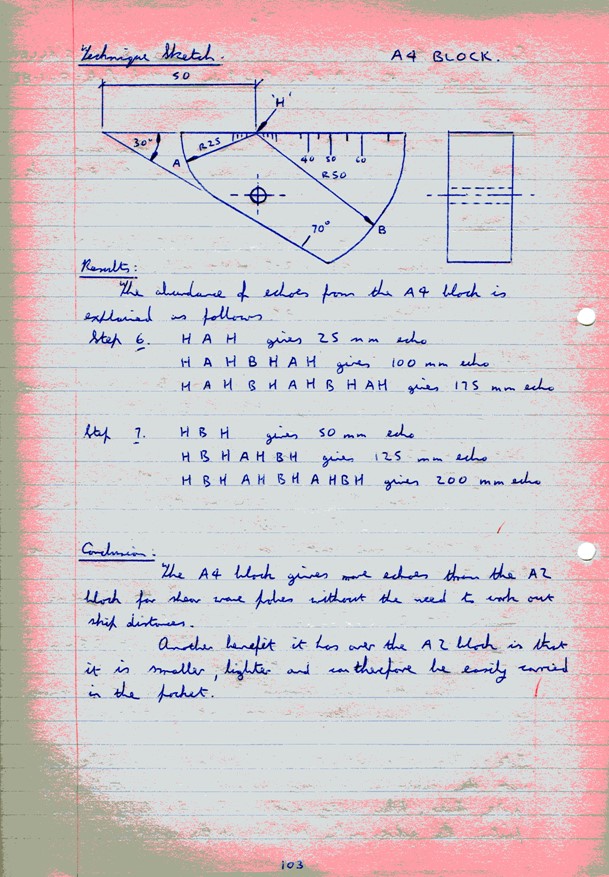 Technique Sketch.
A4 BLOCK.
50
'H'
30°
R25
A
40 50 60
R50
70°
B
Results:
The abundance of echoes from the A4 block is
explained as follows
Step 6. H A H gives 25 mm echo
H A H B H A H gives 100 mm echo
H A H B H A H B H A H gives 175 mm echo
Step 7. H B H gives 50 mm echo
H B H A H B H gives 125 mm echo
H B H A H B H A H B H gives 200 mm echo
Conclusion:
The A4 block gives more echoes than the A2
block for shear wave probes without the need to work out
skip distances.
Another benefit it has over the A2 block is that
it is smaller, lighter and can therefore be easily carried
in the pocket.
103